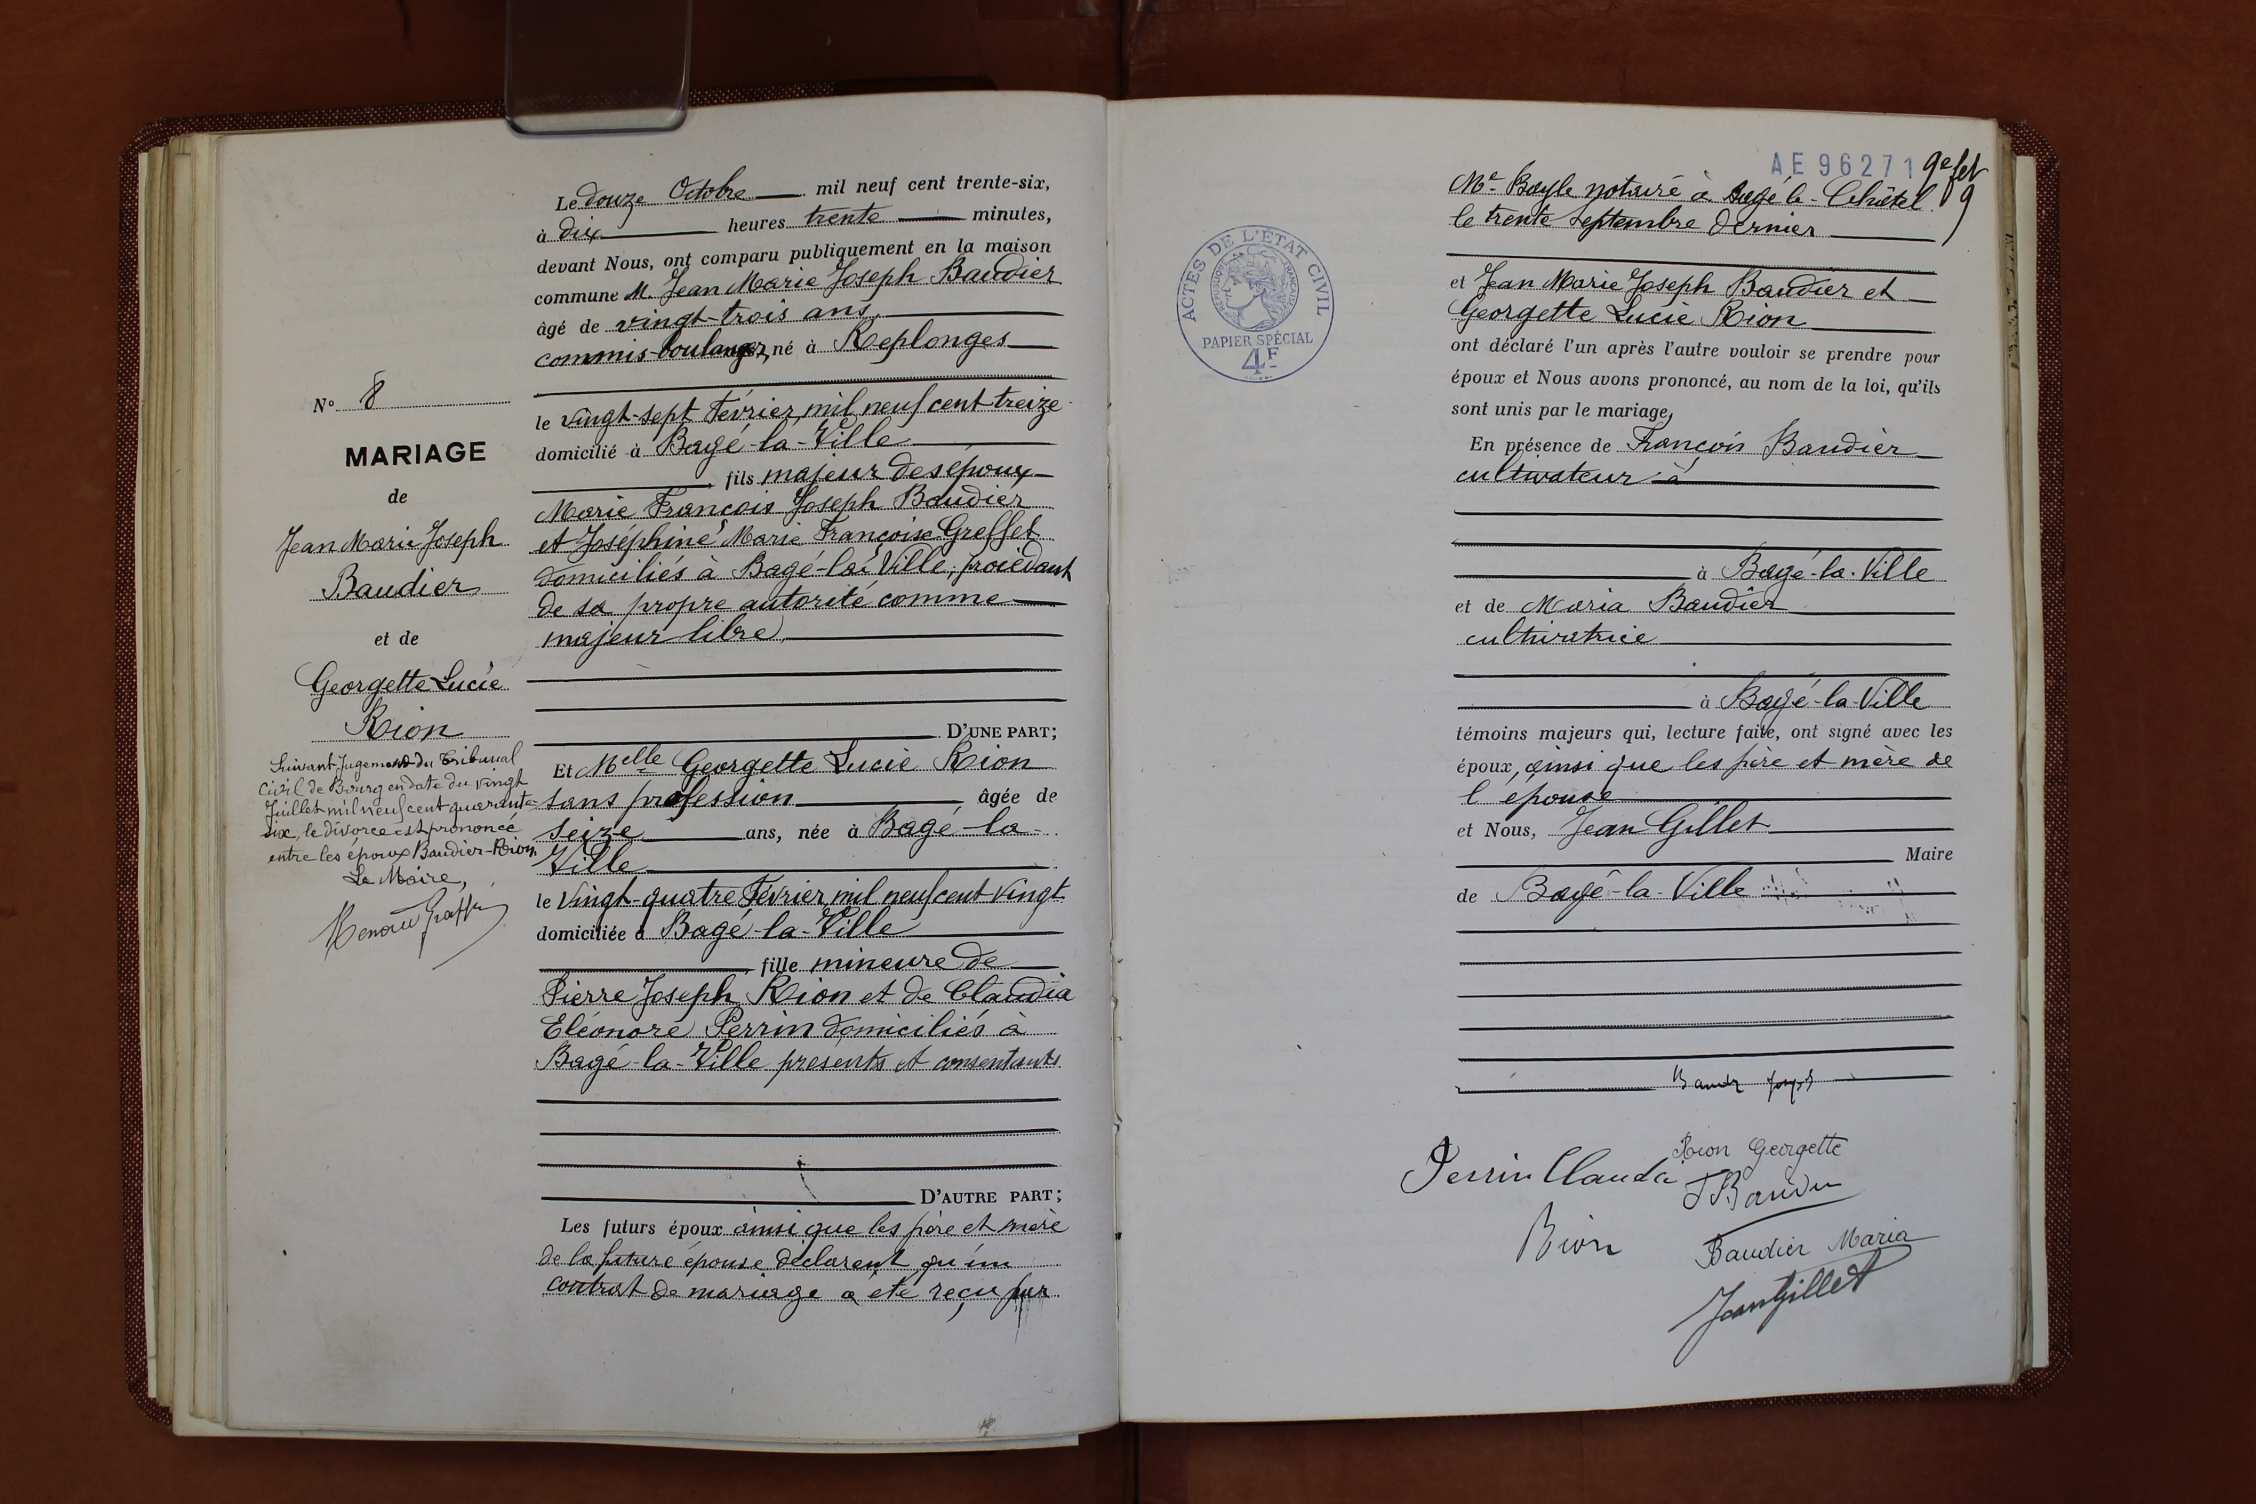 N° 8
MARIAGE
de
Jean Marie Joseph
Baudier
et de
Georgette Lucie
Rion
Suivant Jugement du Tribunal
civil de Bourg en date du vingt
Juillet mil neuf cent quarante-
six, le divorce est prononcé
entre les époux Baudier-Rion.
Le Maire,
Le douze Octobre mil neuf cent trente-six,
à dix heures trente minutes,
devant Nous, ont comparu publiquement en la maison
commune M. Jean Marie Joseph Baudier
âgé de vingt-trois ans,
commis-boulanger, né à Replonges
le vingt-sept Février mil neuf cent treize
domicilié à Bagé-la-Ville
fils majeur des époux
Marie François Joseph Baudier
et Joséphine Marie Françoise Greffet
domiciliés à Bagé-la-Ville, procédant
de sa propre autorité comme
majeur libre
D'UNE PART;
Et Melle Georgette Lucie Rion
sans profession âgée de
seize ans, née à Bagé-la-
Ville
le vingt-quatre Février mil neuf cent vingt
domiciliée à Bagé-la-Ville
fille mineure de
Pierre Joseph Rion et de Claudia
Eléonore Perrin domiciliés à
Bagé-la-Ville présents et consentants
D'AUTRE PART;
Les futurs époux ainsi que les père et mère
de la future épouse déclarent qu'un
contrat de mariage a été reçu par
AE 96271
9e fet
9
Me Bayle notaire à Bagé-le-Châtel
le trente septembre dernier
et Jean Marie Joseph Baudier et
Georgette Lucie Rion
ont déclaré l'un après l'autre vouloir se prendre pour
époux et Nous avons prononcé, au nom de la loi, qu'ils
sont unis par le mariage,
En présence de François Baudier
cultivateur à
à Bagé-la-Ville
et de Maria Baudier
cultivatrice
à Bagé-la-Ville
témoins majeurs qui, lecture faite, ont signé avec les
époux, ainsi que les père et mère de
l'épouse
et Nous, Jean Gillet
Maire
de Bagé-la-Ville
Rion Georgette
Perrin Claudia
Rion
Baudier Maria
Jean Gillet
ACTES DE L'ÉTAT CIVIL
RÉPUBLIQUE FRANÇAISE
PAPIER SPÉCIAL
4F